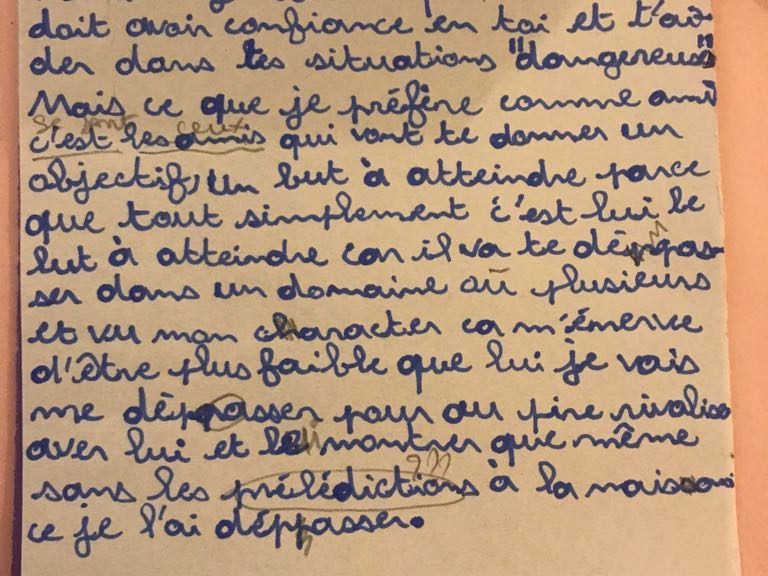 doit avoir confiance en toi et t'ai-
der dans les situations "dangereuse"
Mais ce que je préfère comme ami
se sont ceux
c'est les amis qui vont te donner un
objectif, un but à atteindre parce
que tout simplement c'est lui le
but à atteindre car il va te déppas-
ser dans un domaine ou plusieurs
et vu mon character ca m'énerve
d'être plus faible que lui je vais
me déppasser pour au pire rivaliser
aver lui et le lui montrer que même
???
sans les prélédictions à la naissan
ce je l'ai déppasser.